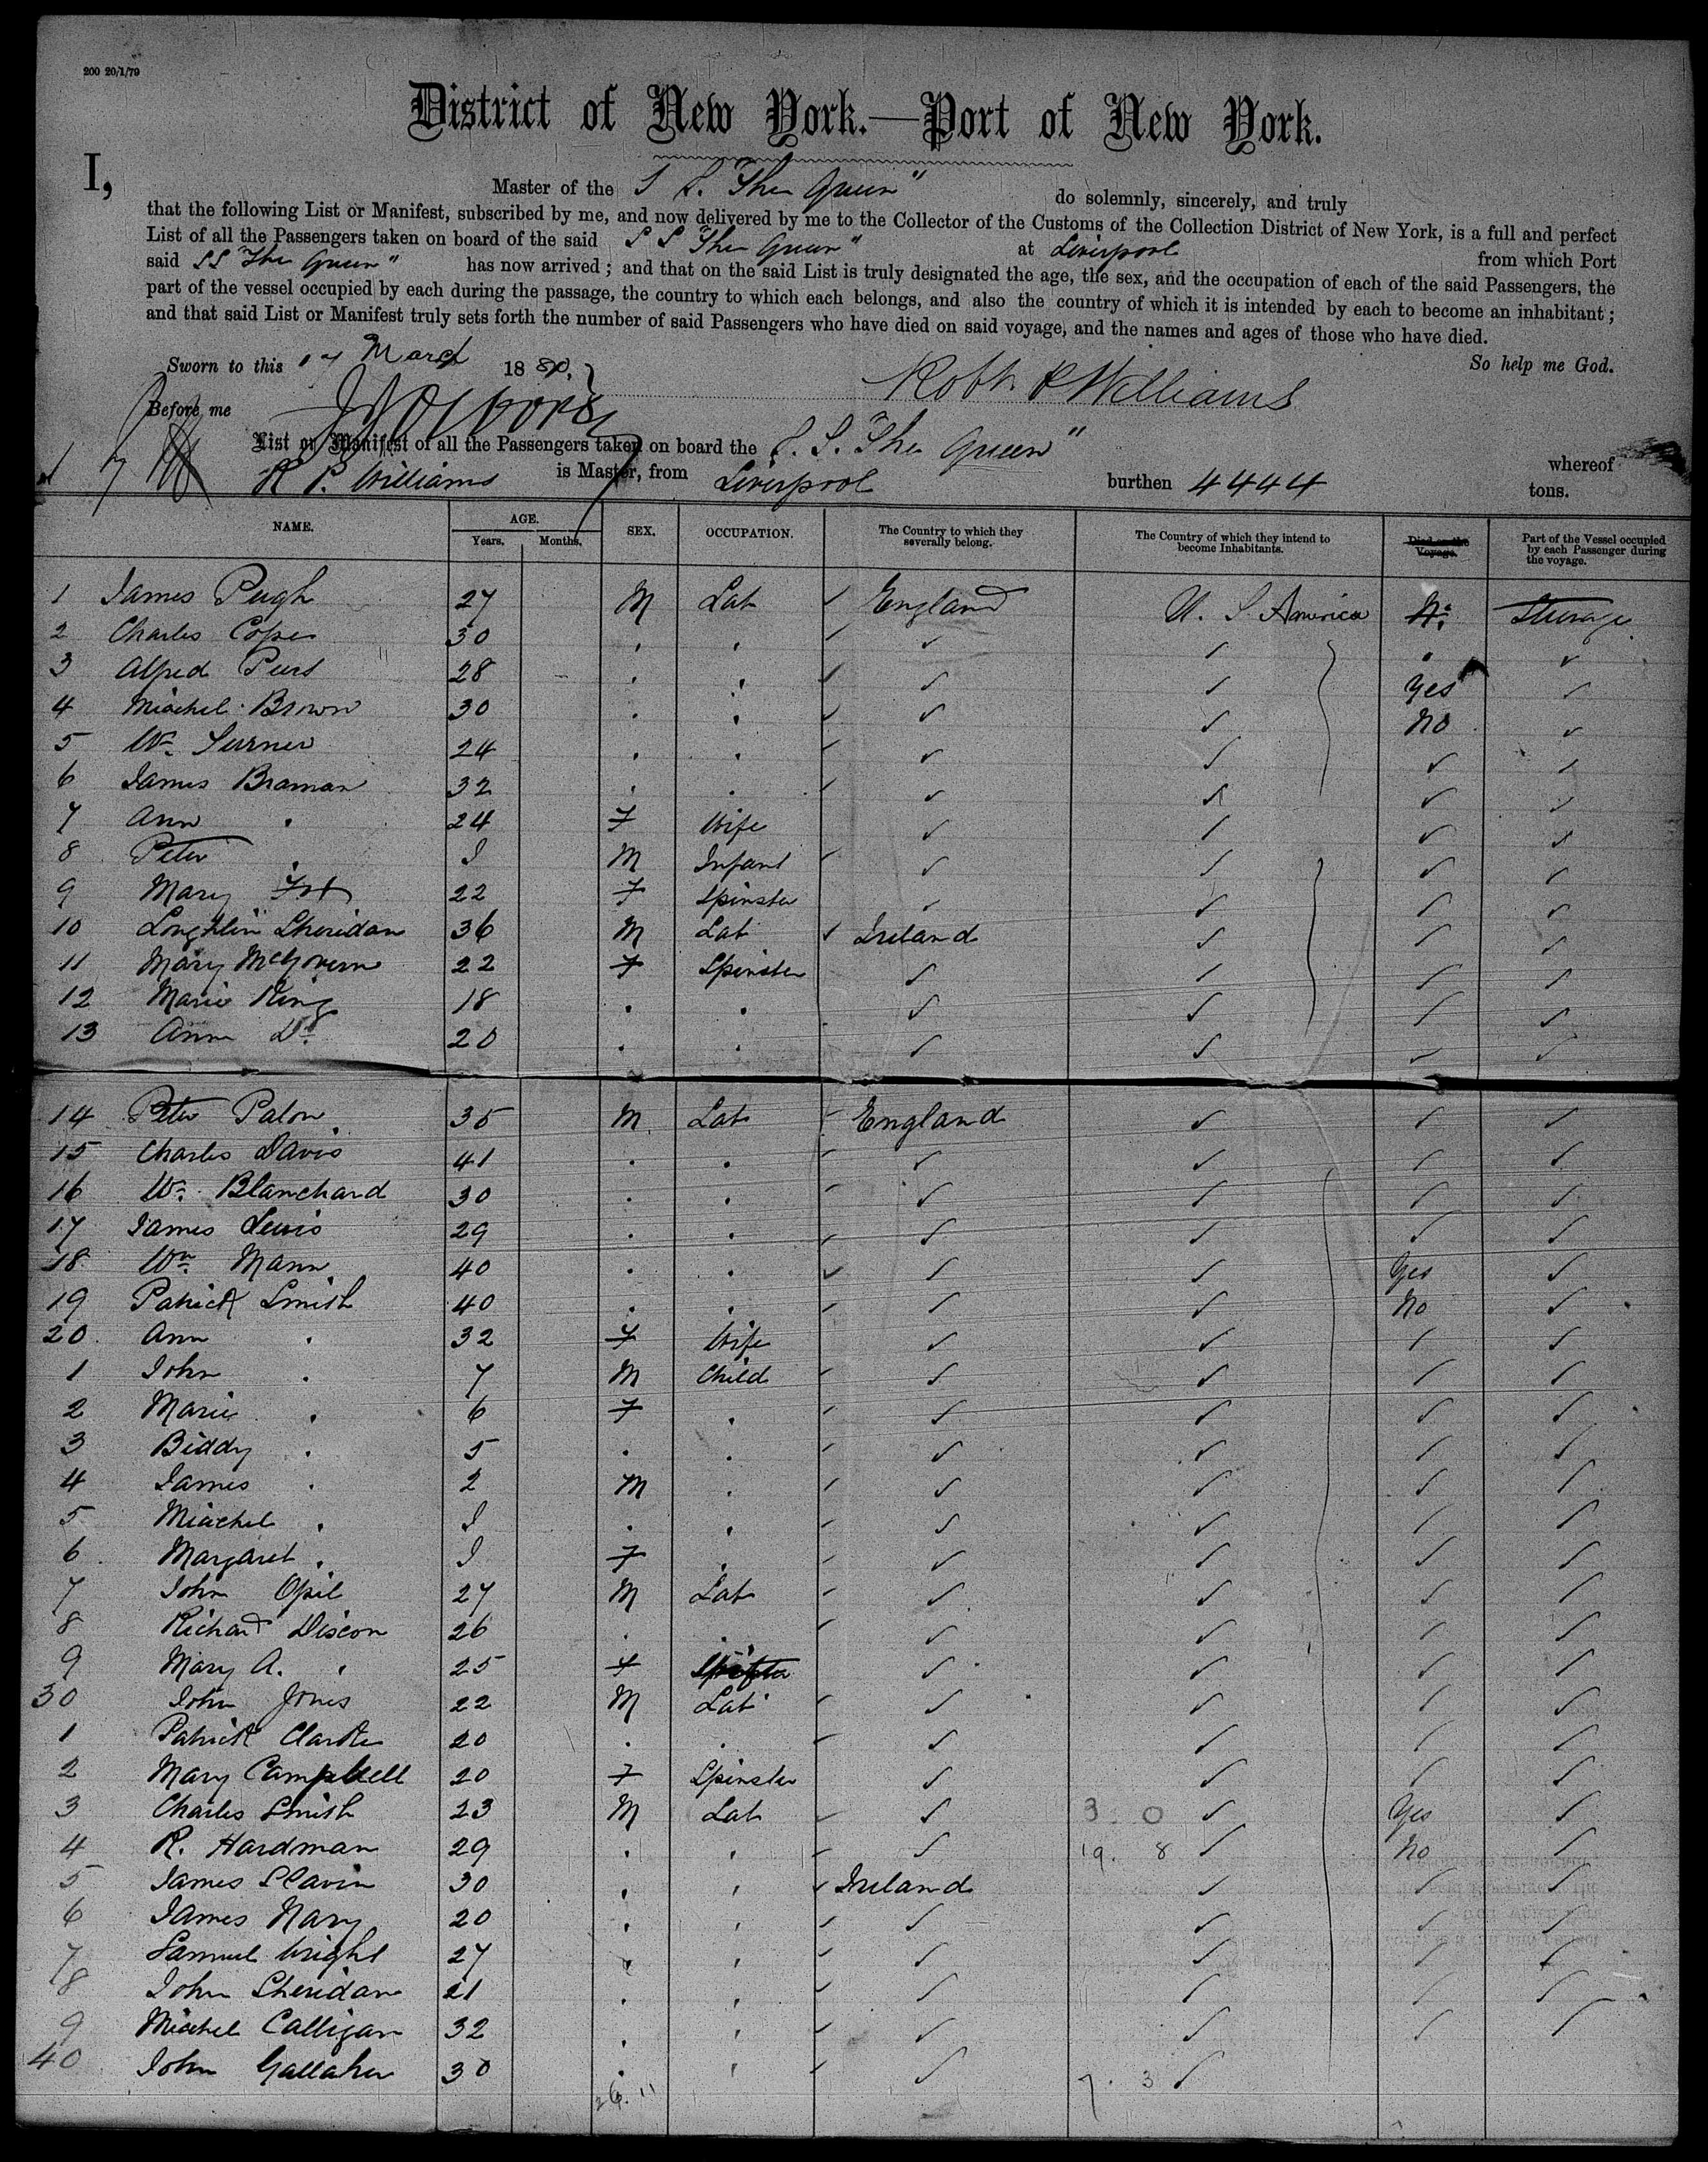 200 20/1/79
District of New York.—Port of New York.
I, Master of the S S. "The Queen" do solemnly, sincerely, and truly
that the following List or Manifest, subscribed by me, and now delivered by me to the Collector of the Customs of the Collection District of New York, is a full and perfect
List of all the Passengers taken on board of the said S S "The Queen" at Liverpool from which Port
said SS "The Queen" has now arrived; and that on the said List is truly designated the age, the sex, and the occupation of each of the said Passengers, the
part of the vessel occupied by each during the passage, the country to which each belongs, and also the country of which it is intended by each to become an inhabitant;
and that said List or Manifest truly sets forth the number of said Passengers who have died on said voyage, and the names and ages of those who have died.
Sworn to this 17 March 1880. So help me God.
Robt P Williams
Before me
List or Manifest of all the Passengers taken on board the S. S. "The Queen" whereof
R P. Williams is Master, from Liverpool burthen 4444 tons.
NAME. AGE. Years. Months. SEX. OCCUPATION. The Country to which they severally belong. The Country of which they intend to become Inhabitants. Died on the Voyage. Part of the Vessel occupied by each Passenger during the voyage.
1 James Pugh 27 M Lab ✓ England U. S. America No Steerage
2 Charles Cope 30 " " ✓ ✓ ✓ " ✓
3 Alfred 28 " " ✓ ✓ ✓ Yes ✓
4 Miachel Brown 30 " " ✓ ✓ ✓ No ✓
5 Wm Turner 24 " " ✓ ✓ ✓ ✓ ✓
6 James Braman 32 " " ✓ ✓ ✓ ✓ ✓
7 Ann " 24 F Wife ✓ ✓ ✓ ✓
8 Peter " I M Infant ✓ ✓ ✓ ✓ ✓
9 Mary Fox 22 F Spinster ✓ ✓ ✓ ✓
10 Loughlin Sheridan 36 M Lab ✓ Ireland ✓ ✓ ✓
11 Mary McGovern 22 F Spinster ✓ ✓ ✓ ✓
12 Marie King 18 " " ✓ ✓ ✓ ✓
13 Ann Do 20 " " ✓ ✓ ✓ ✓
14 Peter Palon 35 M Lab ✓ England ✓ ✓ ✓
15 Charles Davis 41 " " ✓ ✓ ✓ ✓ ✓
16 Wm Blanchard 30 " " ✓ ✓ ✓ ✓ ✓
17 James Lewis 29 " " ✓ ✓ ✓ ✓ ✓
18 Wm Mann 40 " " ✓ ✓ ✓ Yes ✓
19 Patrick Smith 40 " " ✓ ✓ ✓ No ✓
20 Ann " 32 F Wife ✓ ✓ ✓ ✓
1 John " 7 M Child ✓ ✓ ✓ ✓ ✓
2 Marie " 6 F " ✓ ✓ ✓ ✓ ✓
3 Biddy " 5 " " ✓ ✓ ✓ ✓ ✓
4 James " 2 M " ✓ ✓ ✓ ✓ ✓
5 Miachel " I " " ✓ ✓ ✓ ✓ ✓
6 Margaret " I F " ✓ ✓ ✓ ✓ ✓
7 John Opil 27 M Lab ✓ ✓ ✓ ✓ ✓
8 Richard Discon 26 " " ✓ ✓ ✓ ✓ ✓
9 Mary A. " 25 F ✓ ✓ ✓ ✓
30 John Jones 22 M Lab ✓ ✓ ✓ ✓ ✓
1 Patrick Clarke 20 " " ✓ ✓ ✓ ✓ ✓
2 Mary Campbell 20 F Spinster ✓ ✓ ✓ ✓
3 Charles Smith 23 M Lab ✓ ✓ 3. 0 ✓ Yes ✓
4 R. Hardman 29 " " ✓ ✓ 19. 8 ✓ No ✓
5 James Slavin 30 " " ✓ Ireland ✓ ✓ ✓
6 James Nary 20 " " ✓ ✓ ✓ ✓ ✓
7 Samuel Wright 27 " " ✓ ✓ ✓ ✓ ✓
8 John Sheridan 21 " " ✓ ✓ ✓ ✓ ✓
9 Miachel Calligan 32 " " ✓ ✓ ✓ ✓ ✓
40 John Gallaher 30 " " ✓ ✓ 7. 3 ✓
26. 11